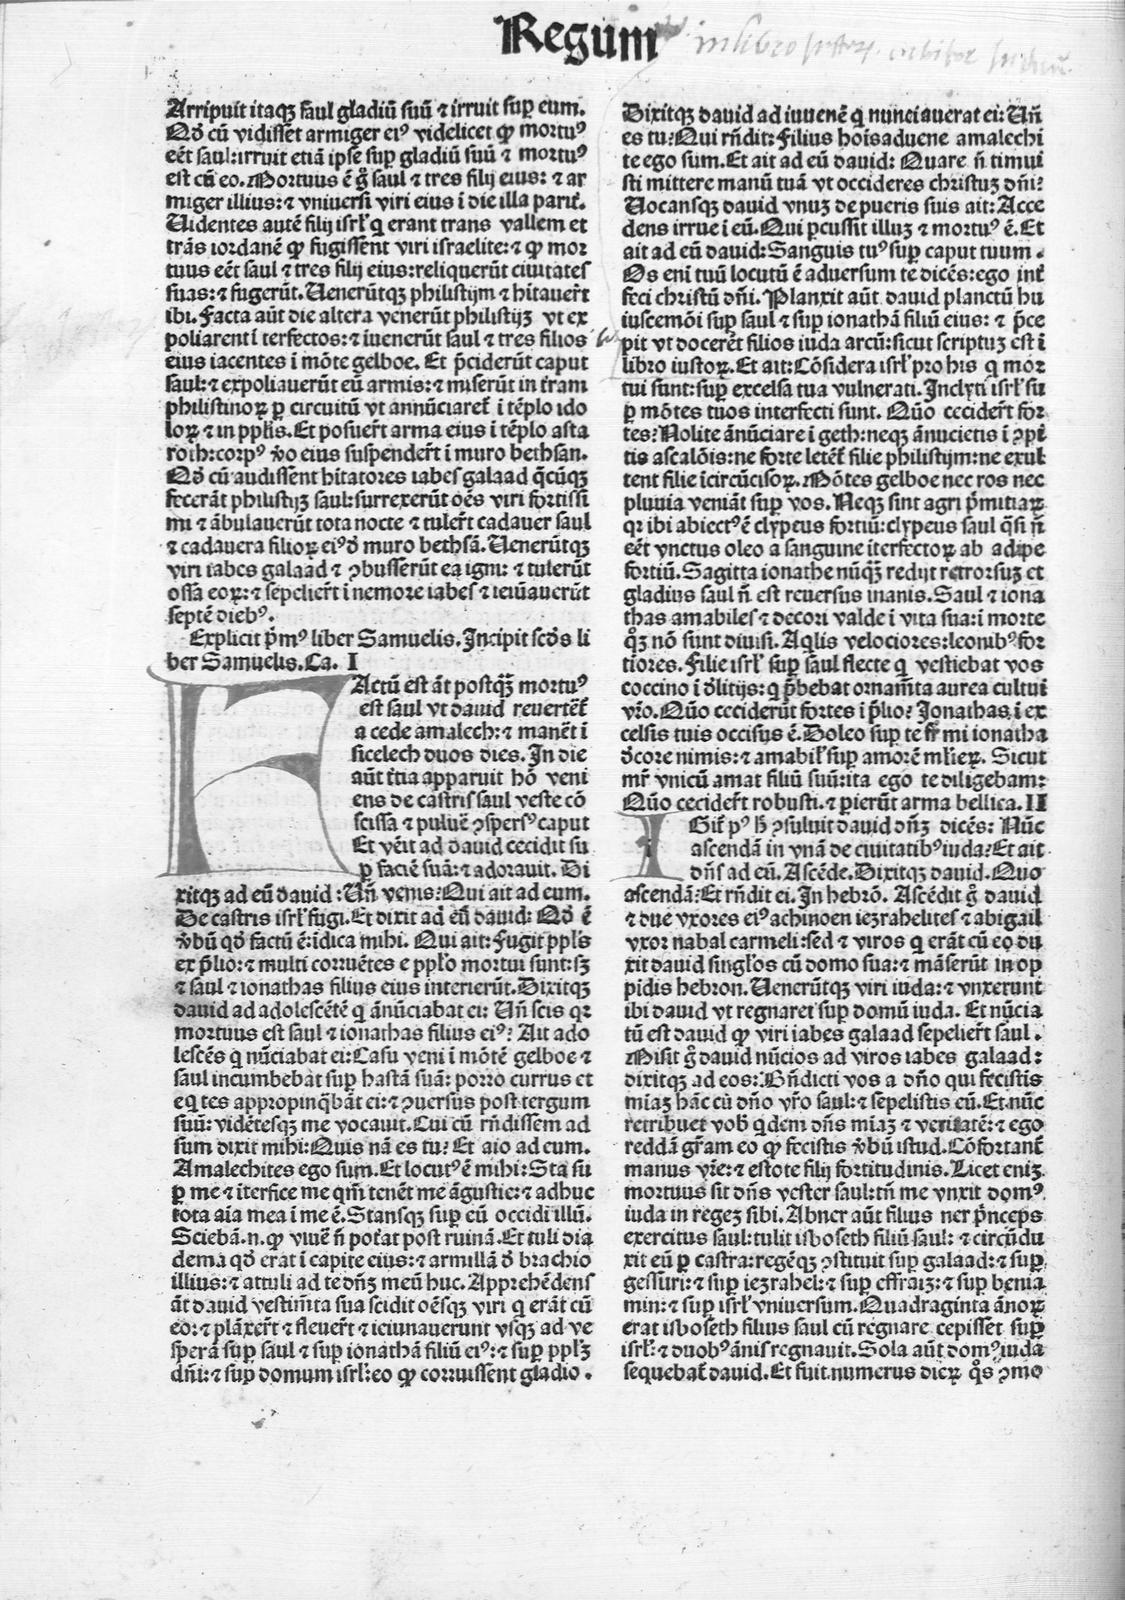 Regum
in libro
Arripuit itaqꝫ saul gladiū suū ⁊ irruit suꝑ eum.
Qđ cū vidisset armiger eiꝰ videlicet ꝙ mortuꝰ
eēt saul:irruit etiā ipse suꝑ gladiū suū ⁊ mortuꝰ
est cū eo. Mortuus ē g̊ saul ⁊ tres filij eius: ⁊ ar
miger illius: ⁊ vniuersi viri eius i die illa parit̄.
Uidentes autē filij isrl̓ q̄ erant trans vallem et
trās iordanē ꝙ fugissent viri israelite: ⁊ ꝙ mor
tuus eēt saul ⁊ tres filij eius:reliquerūt ciuitates
suas: ⁊ fugerūt. Uenerūtqꝫ philistijm ⁊ hītauer̄t
ibi. Facta aūt die altera venerūt philistijꝫ vt ex
poliarent ī terfectos: ⁊ iuenerūt saul ⁊ tres filios
eius iacentes i mōte gelboe. Et p̄ciderūt caput
saul: ⁊ expoliauerūt eū armis: ⁊ miserūt in t̄ram
philistinoꝝ ꝑ circuitū vt annūciaret̄ i tēplo ido
loꝝ ⁊ in ppl̓is. Et posuer̄t arma eius i tēplo asta
roth:corpꝰ v̊o eius suspender̄t i muro bethsan.
Qđ cū audissent hītatores iabes galaad q̄cūqꝫ
fecerāt philistijꝫ saul:surrexerūt oēs viri fortissi
mi ⁊ ābulauerūt tota nocte ⁊ tuler̄t cadauer saul
⁊ cadauera filioꝝ eiꝰ đ muro bethsā. Uenerūtqꝫ
viri iabes galaad ⁊ ꝯbusserūt ea igni: ⁊ tulerūt
ossa eoꝝ: ⁊ sepelier̄t i nemore iabes ⁊ ieiūauerūt
septē diebꝰ.
Explicit p̄mꝰ liber Samuelis. Incipit scđs li
ber Samuelis. Ca. I
FActū est āt postq̄ꝫ mortuꝰ
est saul vt dauid reuertēt̄
a cede amalech: ⁊ manēt i
sicelech duos dies. In die
aūt t̄tia apparuit hō veni
ens de castris saul veste cō
scissa ⁊ puluē ꝯspersꝰ caput
Et vēit ad dauid cecidit su
ꝑ faciē suā: ⁊ adorauit. Di
xitqꝫ ad eū dauid: Un̄ venis? Qui ait ad eum.
De castris isrl̓ fugi. Et dixit ad eū dauid: Qđ ē
v̊bū qđ factū ē:īdica mihi. Qui ait: Fugit ppl̓s
ex p̄lio: ⁊ multi corruētes e ppl̓o mortui sunt:sꝫ
⁊ saul ⁊ ionathas filius eius interierūt. Dixitqꝫ
dauid ad adolescētē q̄ ānūciabat ei: Un̄ scis qꝛ
mortuus est saul ⁊ ionathas filius eiꝰ? Ait ado
lescēs q̄ nūciabat ei: Casu veni i mōtē gelboe ⁊
saul incumbebat suꝑ hastā suā: porro currus et
eq̄tes appropinq̄bāt ei: ⁊ ꝯuersus post tergum
suū: vidētesqꝫ me vocauit. Cui cū rn̄dissem ad
sum dixit mihi: Quis nā es tu? Et aio ad eum.
Amalechites ego sum. Et locutꝰ ē mihi: Sta su
ꝑ me ⁊ īterfice me qm̄ tenēt me āgustie: ⁊ adhuc
tota aīa mea i me ē. Stansqꝫ suꝑ eū occidi illū.
Sciebā.n.ꝙ viuē n̄ pot̄at post ruinā. Et tuli dia
dema qđ erat i capite eius: ⁊ armillā đ brachio
illius: ⁊ attuli ad te dn̄ꝫ meū huc. Apprehēdens
āt dauid vestim̄ta sua scidit oēsqꝫ viri q̄ erāt cū
eo: ⁊ plāxer̄t ⁊ fleuer̄t ⁊ ieiunauerunt vsqꝫ ad ve
sperā suꝑ saul ⁊ suꝑ ionathā filiū eiꝰ: ⁊ suꝑ ppl̓ꝫ
dn̄i: ⁊ suꝑ domum isrl̓:eo ꝙ corruissent gladio.
Dixitqꝫ dauid ad iuuenē q̄ nunciauerat ei: Un̄
es tu? Qui rn̄dit: Filius hoīs aduene amalechi
te ego sum. Et ait ad eū dauid: Quare n̄ timui
sti mittere manū tuā vt occideres christuꝫ dn̄i?
Uocansqꝫ dauid vnuꝫ de pueris suis ait: Acce
dens irrue i eū. Qui ꝑcussit illuꝫ ⁊ mortuꝰ ē. Et
ait ad eū dauid: Sanguis tuꝰ suꝑ caput tuum.
Os eni tuū locutū ē aduersum te dicēs: ego int̄
feci christū dn̄i. Planxit aūt dauid planctū hu
iuscemōi suꝑ saul ⁊ suꝑ ionathā filiū eius: ⁊ p̄ce
pit vt docerēt filios iuda arcū:sicut scriptuꝫ est i
libro iustoꝝ. Et ait: Cōsidera isrl̓ pro his q̄ mor
tui sunt:suꝑ excelsa tua vulnerati. Inclyti isrl̓ su
ꝑ mōtes tuos interfecti sunt. Quō cecider̄t for
tes? Nolite ānūciare i geth:neqꝫ ānucietis i ꝯpi
tis ascalōis:ne forte letēt̄ filie philistijm:ne exul
tent filie īcircūcisoꝝ. Mōtes gelboe nec ros nec
pluuia veniāt suꝑ vos. Neqꝫ sint agri p̄mitiaꝝ
qꝛ ibi abiectꝰ ē clypeus fortiū: clypeus saul q̄si n̄
eēt vnctus oleo a sanguine īterfectoꝝ ab adipe
fortiū. Sagitta ionathe nūq̄ꝫ redijt retrorsuꝫ et
gladius saul n̄ est reuersus inanis. Saul ⁊ iona
thas amabiles ⁊ decori valde i vita sua: i morte
q̊ꝫ nō sunt diuisi. Aq̄lis velociores: leonibꝰ for
tiores. Filie isrl̓ suꝑ saul flecte q̄ vestiebat vos
coccino i đlitijs: q̄ p̄bebat ornam̄ta aurea cultui
vr̄o. Quō ceciderūt fortes i p̄lio? Jonathas i ex
celsis tuis occisus ē. Doleo suꝑ te fr̄ mi ionatha
đcore nimis: ⁊ amabil̓ suꝑ amorē ml̓ieꝝ. Sicut
mr̄ vnicū amat filiū suū:ita ego te diligebam:
Quō cecider̄t robusti. ⁊ ꝑierūt arma bellica. II
IGit̄ pꝰ h̄ ꝯsuluit dauid dn̄ꝫ dicēs: Nūc
ascendā in vnā de ciuitatibꝰ iuda? Et ait
dn̄s ad eū. Ascēde. Dixitqꝫ dauid. Quo
ascendā? Et rn̄dit ei. In hebrō. Ascēdit g̊ dauid
⁊ due vxores eiꝰ achinoen iezrahelites ⁊ abigail
vxor nabal carmeli:sed ⁊ viros q̄ erāt cū eo du
xit dauid singl̓os cū domo sua: ⁊ māserūt in op
pidis hebron. Uenerūtqꝫ viri iuda: ⁊ vnxerunt
ibi dauid vt regnaret suꝑ domū iuda. Et nūcia
tū est dauid ꝙ viri iabes galaad sepelier̄t saul.
Misit g̊ dauid nūcios ad viros iabes galaad:
dixitqꝫ ad eos: Bn̄dicti vos a dn̄o qui fecistis
miaꝫ hāc cū dn̄o vr̄o saul: ⁊ sepelistis eū. Et nūc
retribuet vob̄ q̄dem dn̄s miaꝫ ⁊ veritatē: ⁊ ego
reddā gr̄am eo ꝙ fecistis v̊bū istud. Cōfortant̄
manus vr̄e: ⁊ estote filij fortitudinis. Licet eniꝫ
mortuus sit dn̄s vester saul:tn̄ me vnxit domꝰ
iuda in regeꝫ sibi. Abner aūt filius ner p̄nceps
exercitus saul: tulit isboseth filiū saul: ⁊ circūdu
xit eū ꝑ castra: regēqꝫ ꝯstituit suꝑ galaad: ⁊ suꝑ
gessuri: ⁊ suꝑ iezrahel: ⁊ suꝑ effraiꝫ: ⁊ suꝑ benia
min: ⁊ suꝑ isrl̓ vniuersum. Quadraginta ānoꝝ
erat isboseth filius saul cū regnare cepisset suꝑ
isrl̓: ⁊ duobꝰ ānis regnauit. Sola aūt domꝰ iuda
sequebat̄ dauid. Et fuit numerus dieꝝ q̊s ꝯmo